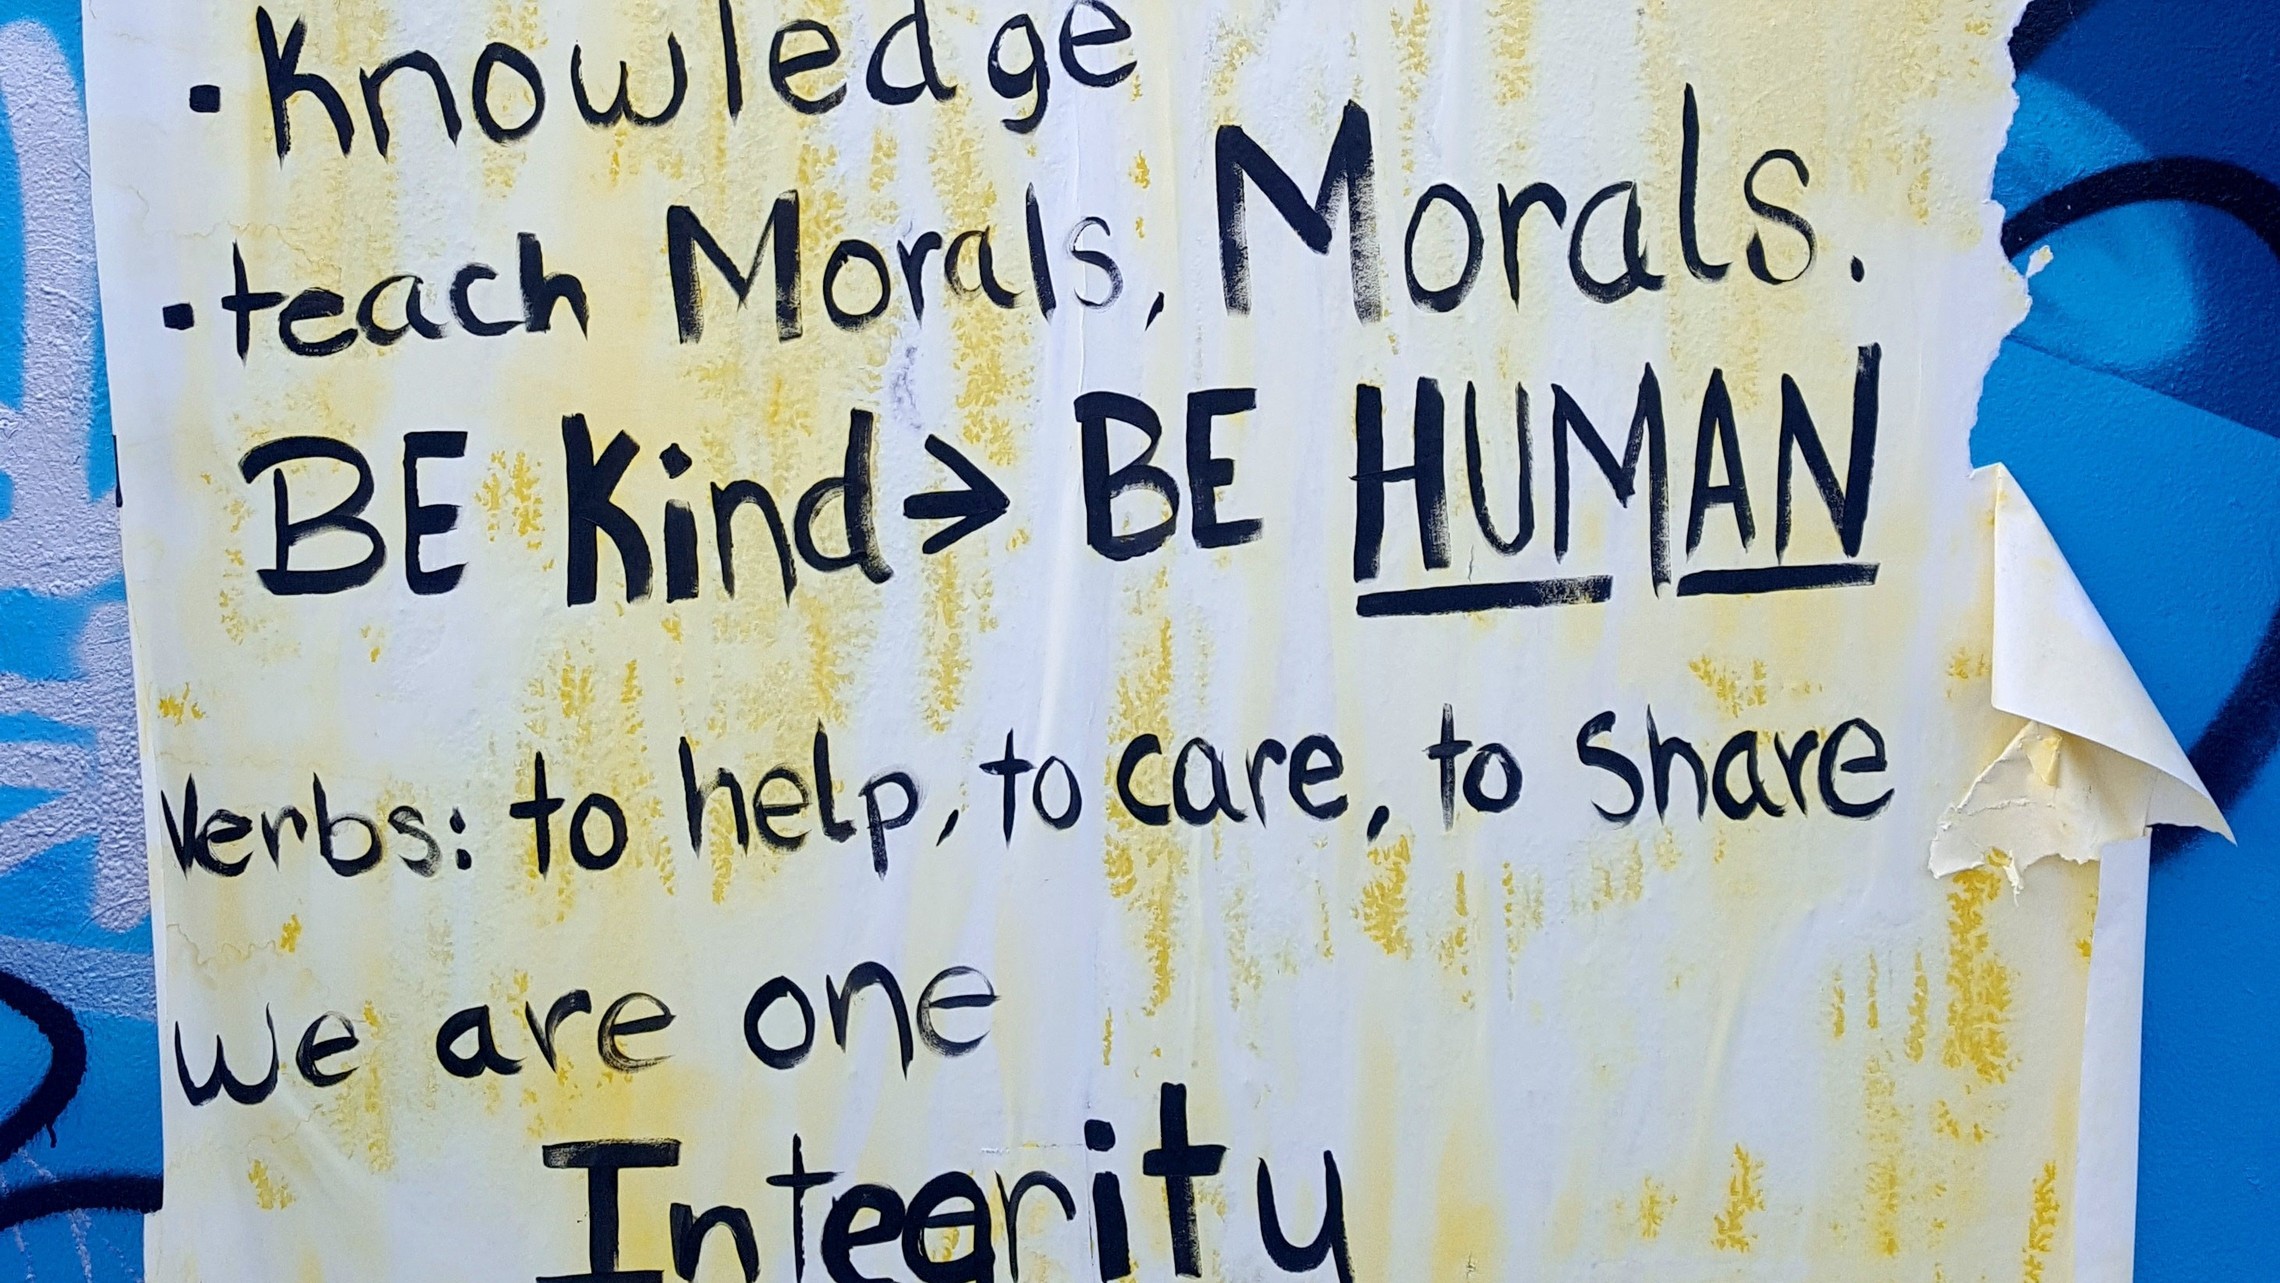 • Knowledge
• teach Morals, Morals.
BE Kind → BE HUMAN
Verbs: to help, to care, to share
we are one
Integrity